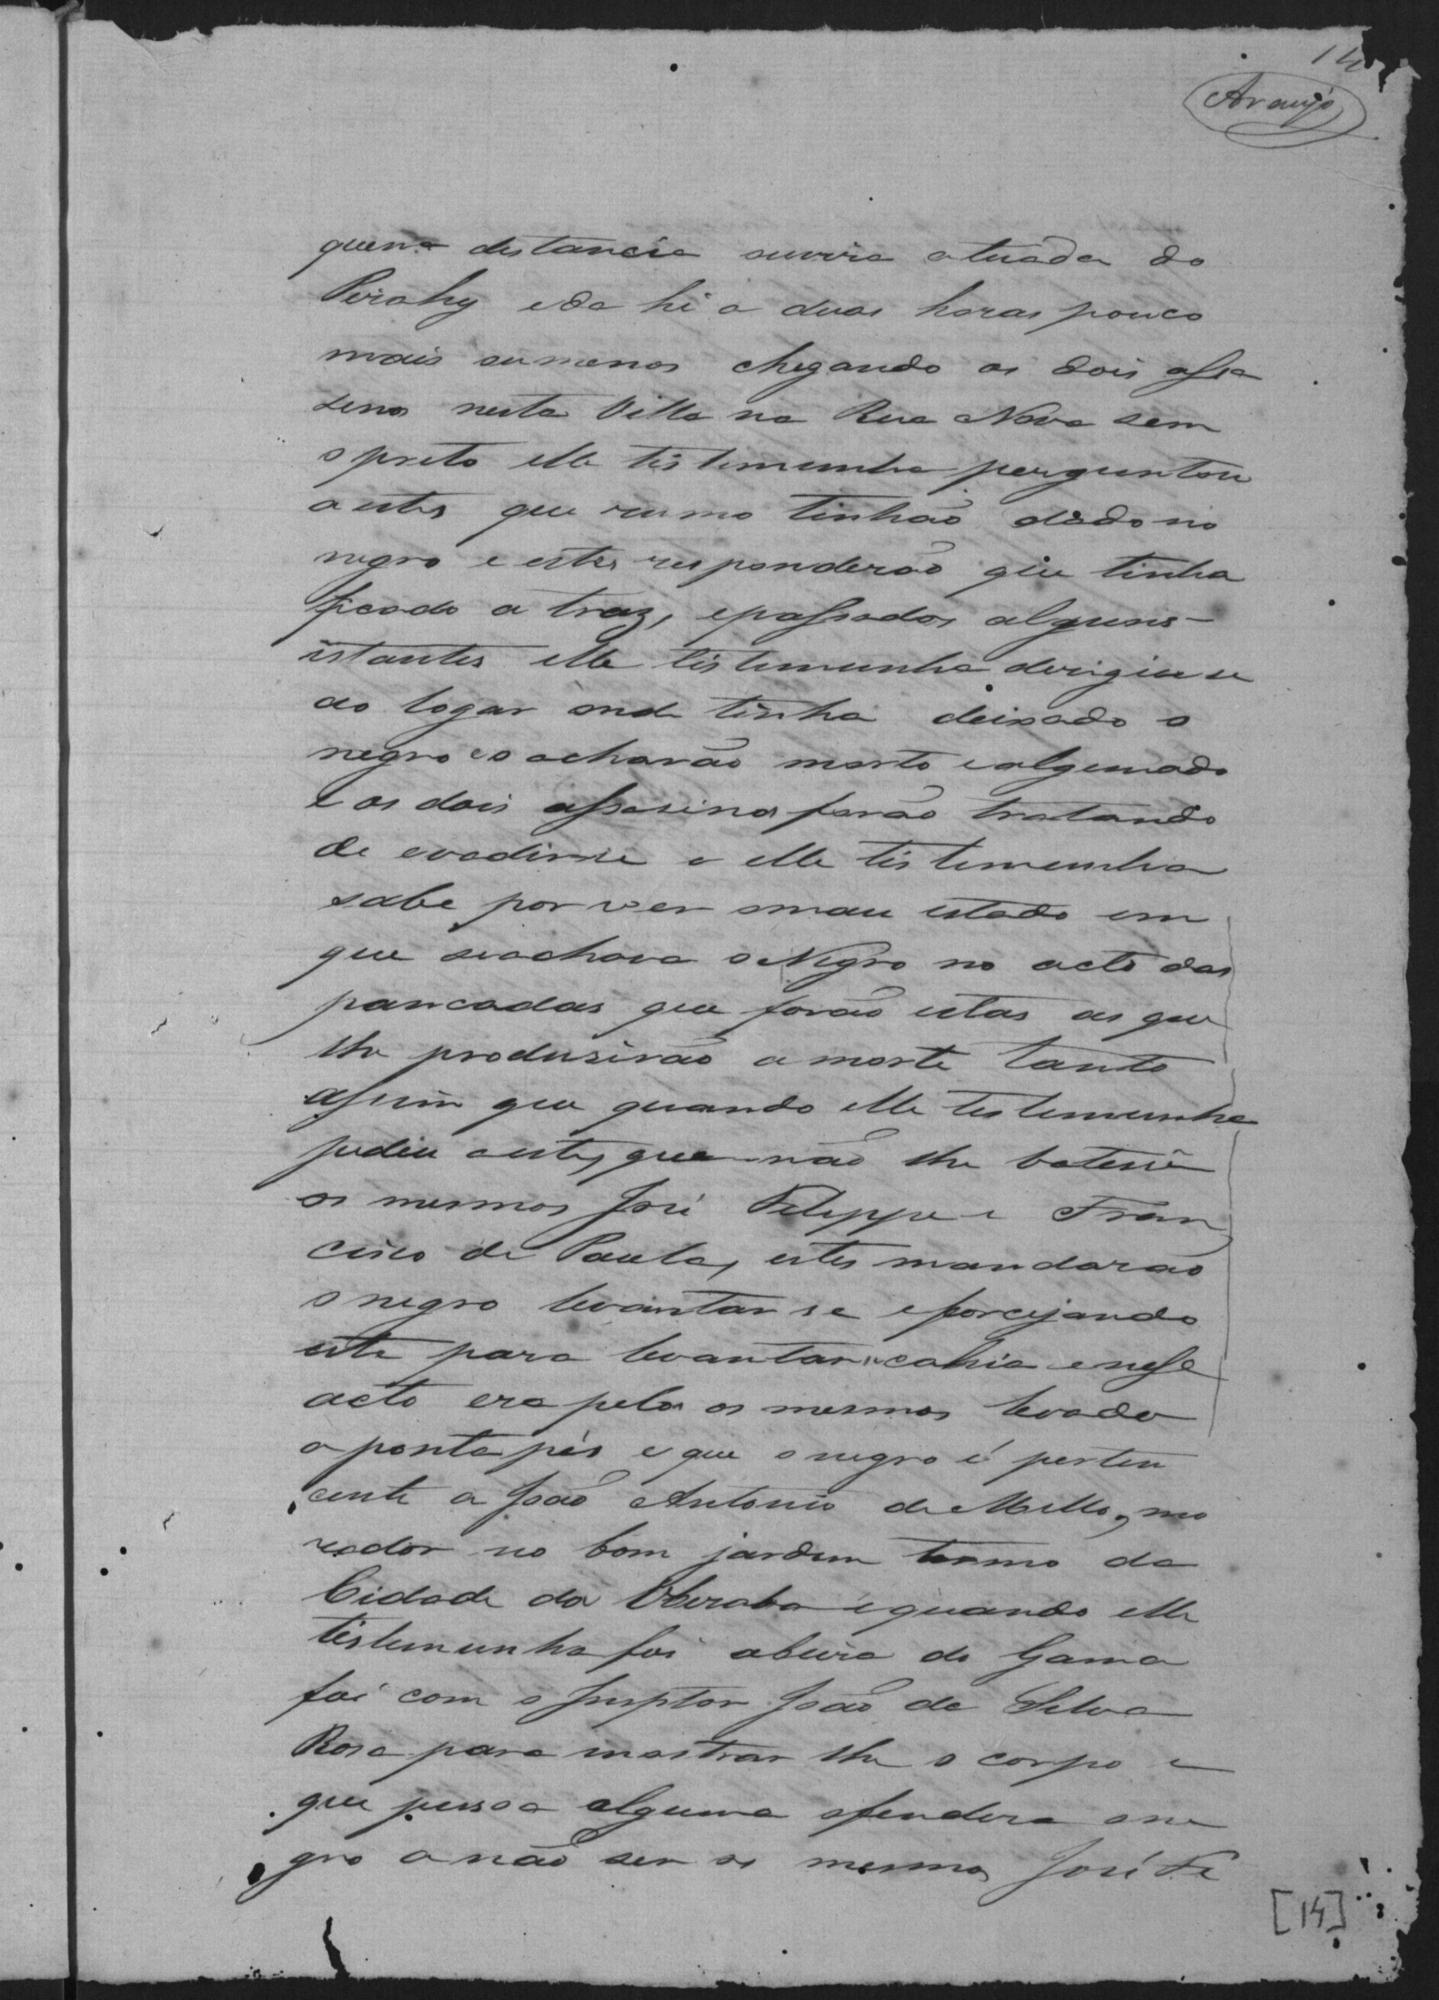 14
Araujo
quena distancia ouvira atuada do
Pirahy e da hi a duas horas pouco
mais ou menos chegando os dois assa
sinos nesta Villa na Rua Nova sem
o preto elle testemunha perguntou
a estes que rumo tinhão dado no
negro e estes responderão que tinha
ficado a traz, e passados alguns
istantes elle testemunha derigiu se
ao logar onde tinha deixado o
negro e o acharão morto e algemado
e os dois assasinos forão tratando
de evadirse e elle testemunha
sabe por ver o mau estado em
que se achava o Negro no acto das
pancadas que forão estas as que
lhe produsirão a morte tanto
assim que quando elle testemunha
pediu a estes que não lhe batessē
os mesmos José Felippe e Fran
cisco de Paula, estes mandarão
o negro levantar se e forcejando
este para levantar se cahia e nesse
acto era pelos os mesmos levado
a ponta pés e que o negro é perten
cente a João Antonio de Mello, mo
rador no bom jardim termo da
Cidade da Uberaba e quando elle
testemunha foi abeira do Gama
foi com o Insptor João da Silva
Rosa para mostrar lhe o corpo e
que pessoa alguma ofendera o ne
gro a não ser os mesmos José Fe
[14]